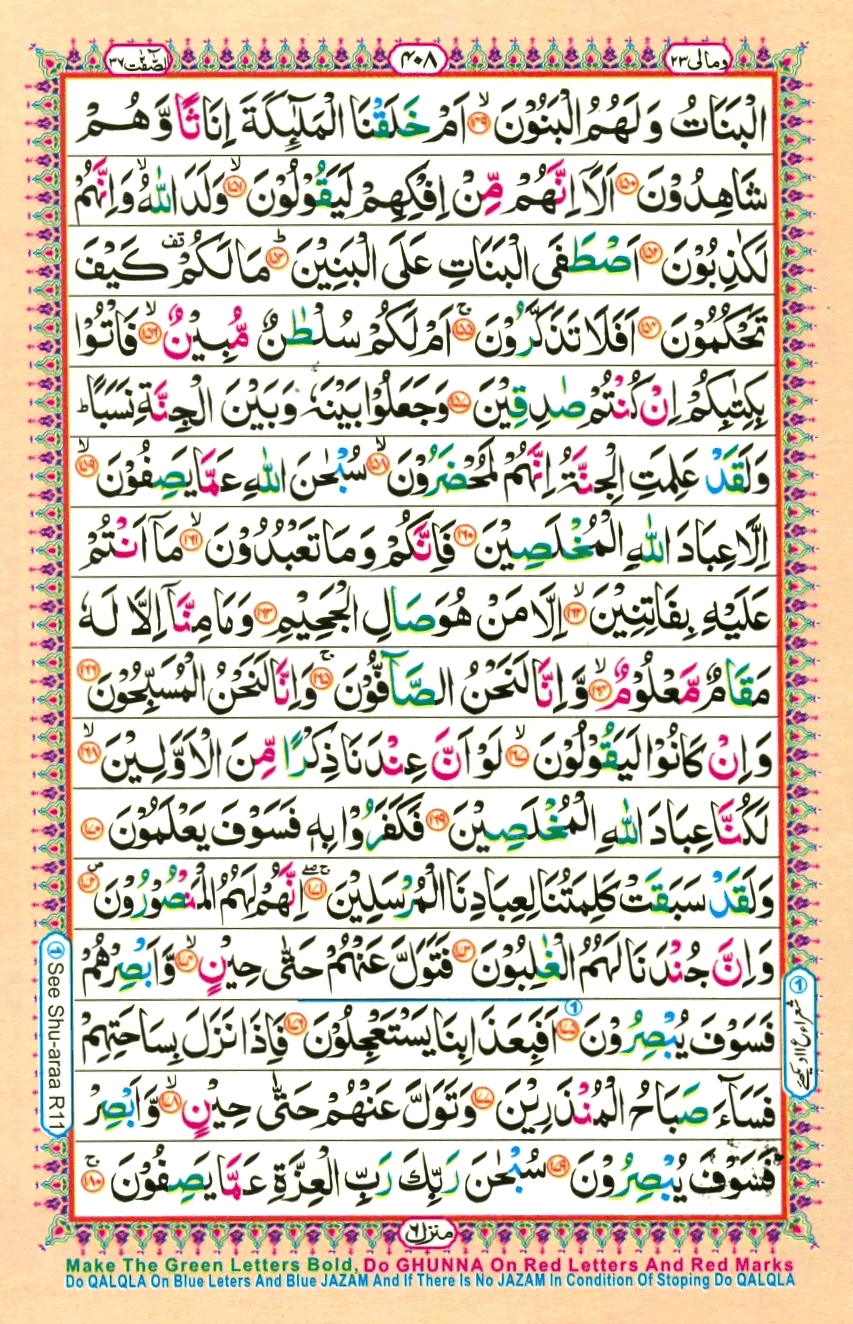 والصّٰٓفّٰت ٣٧
٤٠٨
ومالی ٢٣
الْبَنَاتُ وَلَهُمُ الْبَنُوْنَ ۙ﴿١٤٩﴾ اَمْ خَلَقْنَا الْمَلٰٓئِكَةَ اِنَاثًا وَّهُمْ
شَاهِدُوْنَ ﴿١٥٠﴾ اَلَاۤ اِنَّهُمْ مِّنْ اِفْكِهِمْ لَيَقُوْلُوْنَ ۙ﴿١٥١﴾ وَلَدَ اللّٰهُ ۙ وَاِنَّهُمْ
لَكٰذِبُوْنَ ﴿١٥٢﴾ اَصْطَفَى الْبَنَاتِ عَلَى الْبَنِيْنَ ؕ﴿١٥٣﴾ مَا لَكُمْ ۟ كَيْفَ
تَحْكُمُوْنَ ﴿١٥٤﴾ اَفَلَا تَذَكَّرُوْنَ ۚ﴿١٥٥﴾ اَمْ لَكُمْ سُلْطٰنٌ مُّبِيْنٌ ۙ﴿١٥٦﴾ فَاْتُوْا
بِكِتٰبِكُمْ اِنْ كُنْتُمْ صٰدِقِيْنَ ﴿١٥٧﴾ وَجَعَلُوْا بَيْنَهٗ وَبَيْنَ الْجِنَّةِ نَسَبًا ؕ
وَلَقَدْ عَلِمَتِ الْجِنَّةُ اِنَّهُمْ لَمُحْضَرُوْنَ ۙ﴿١٥٨﴾ سُبْحٰنَ اللّٰهِ عَمَّا يَصِفُوْنَ ۙ﴿١٥٩﴾
اِلَّا عِبَادَ اللّٰهِ الْمُخْلَصِيْنَ ﴿١٦٠﴾ فَاِنَّكُمْ وَمَا تَعْبُدُوْنَ ۙ﴿١٦١﴾ مَاۤ اَنْتُمْ
عَلَيْهِ بِفَاتِنِيْنَ ۙ﴿١٦٢﴾ اِلَّا مَنْ هُوَ صَالِ الْجَحِيْمِ ﴿١٦٣﴾ وَمَا مِنَّاۤ اِلَّا لَهٗ
مَقَامٌ مَّعْلُوْمٌ ۙ﴿١٦٤﴾ وَّاِنَّا لَنَحْنُ الصَّآفُّوْنَ ۚ﴿١٦٥﴾ وَاِنَّا لَنَحْنُ الْمُسَبِّحُوْنَ ﴿١٦٦﴾
وَاِنْ كَانُوْا لَيَقُوْلُوْنَ ۙ﴿١٦٧﴾ لَوْ اَنَّ عِنْدَنَا ذِكْرًا مِّنَ الْاَوَّلِيْنَ ۙ﴿١٦٨﴾
لَكُنَّا عِبَادَ اللّٰهِ الْمُخْلَصِيْنَ ﴿١٦٩﴾ فَكَفَرُوْا بِهٖ فَسَوْفَ يَعْلَمُوْنَ ﴿١٧٠﴾
وَلَقَدْ سَبَقَتْ كَلِمَتُنَا لِعِبَادِنَا الْمُرْسَلِيْنَ ۚۖ﴿١٧١﴾ اِنَّهُمْ لَهُمُ الْمَنْصُوْرُوْنَ ۪﴿١٧٢﴾
وَاِنَّ جُنْدَنَا لَهُمُ الْغٰلِبُوْنَ ﴿١٧٣﴾ فَتَوَلَّ عَنْهُمْ حَتّٰى حِيْنٍ ۙ﴿١٧٤﴾ وَّاَبْصِرْهُمْ
فَسَوْفَ يُبْصِرُوْنَ ﴿١٧٥﴾ اَفَبِعَذَابِنَا يَسْتَعْجِلُوْنَ ﴿١٧٦﴾ فَاِذَا نَزَلَ بِسَاحَتِهِمْ
فَسَآءَ صَبَاحُ الْمُنْذَرِيْنَ ﴿١٧٧﴾ وَتَوَلَّ عَنْهُمْ حَتّٰى حِيْنٍ ۙ﴿١٧٨﴾ وَّاَبْصِرْ
فَسَوْفَ يُبْصِرُوْنَ ﴿١٧٩﴾ سُبْحٰنَ رَبِّكَ رَبِّ الْعِزَّةِ عَمَّا يَصِفُوْنَ ۚ﴿١٨٠﴾
① See Shu-araa R11
منزل ٦
Make The Green Letters Bold, Do GHUNNA On Red Letters And Red Marks
Do QALQLA On Blue Leters And Blue JAZAM And If There Is No JAZAM In Condition Of Stoping Do QALQLA